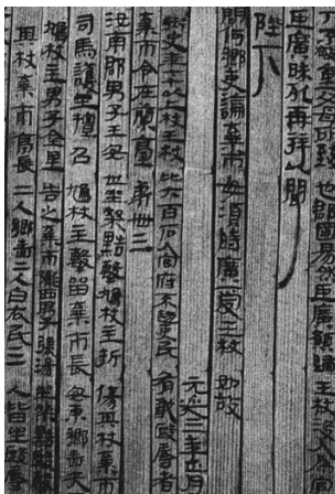 不敬重父母所致也郡國易然臣廣願歸王杖沒入為官
臣廣昧死再拜以聞
陛下
問何鄉吏論棄市毋須時廣受王杖如故
元延三年正月
年七十以上杖王杖比六百石入官府不趨吏民有敢毆辱者
棄市令在蘭臺第卌三
汝南郡男子王安世坐桀黠擊鳩杖主折傷其杖棄市
司馬護坐擅召鳩杖主擊留棄市長安東鄉嗇夫
鳩杖主男子金里告之棄市隴西男子張湯坐桀黠毆擊
其杖棄市亭長二人鄉嗇二人白衣民三人皆坐毆辱